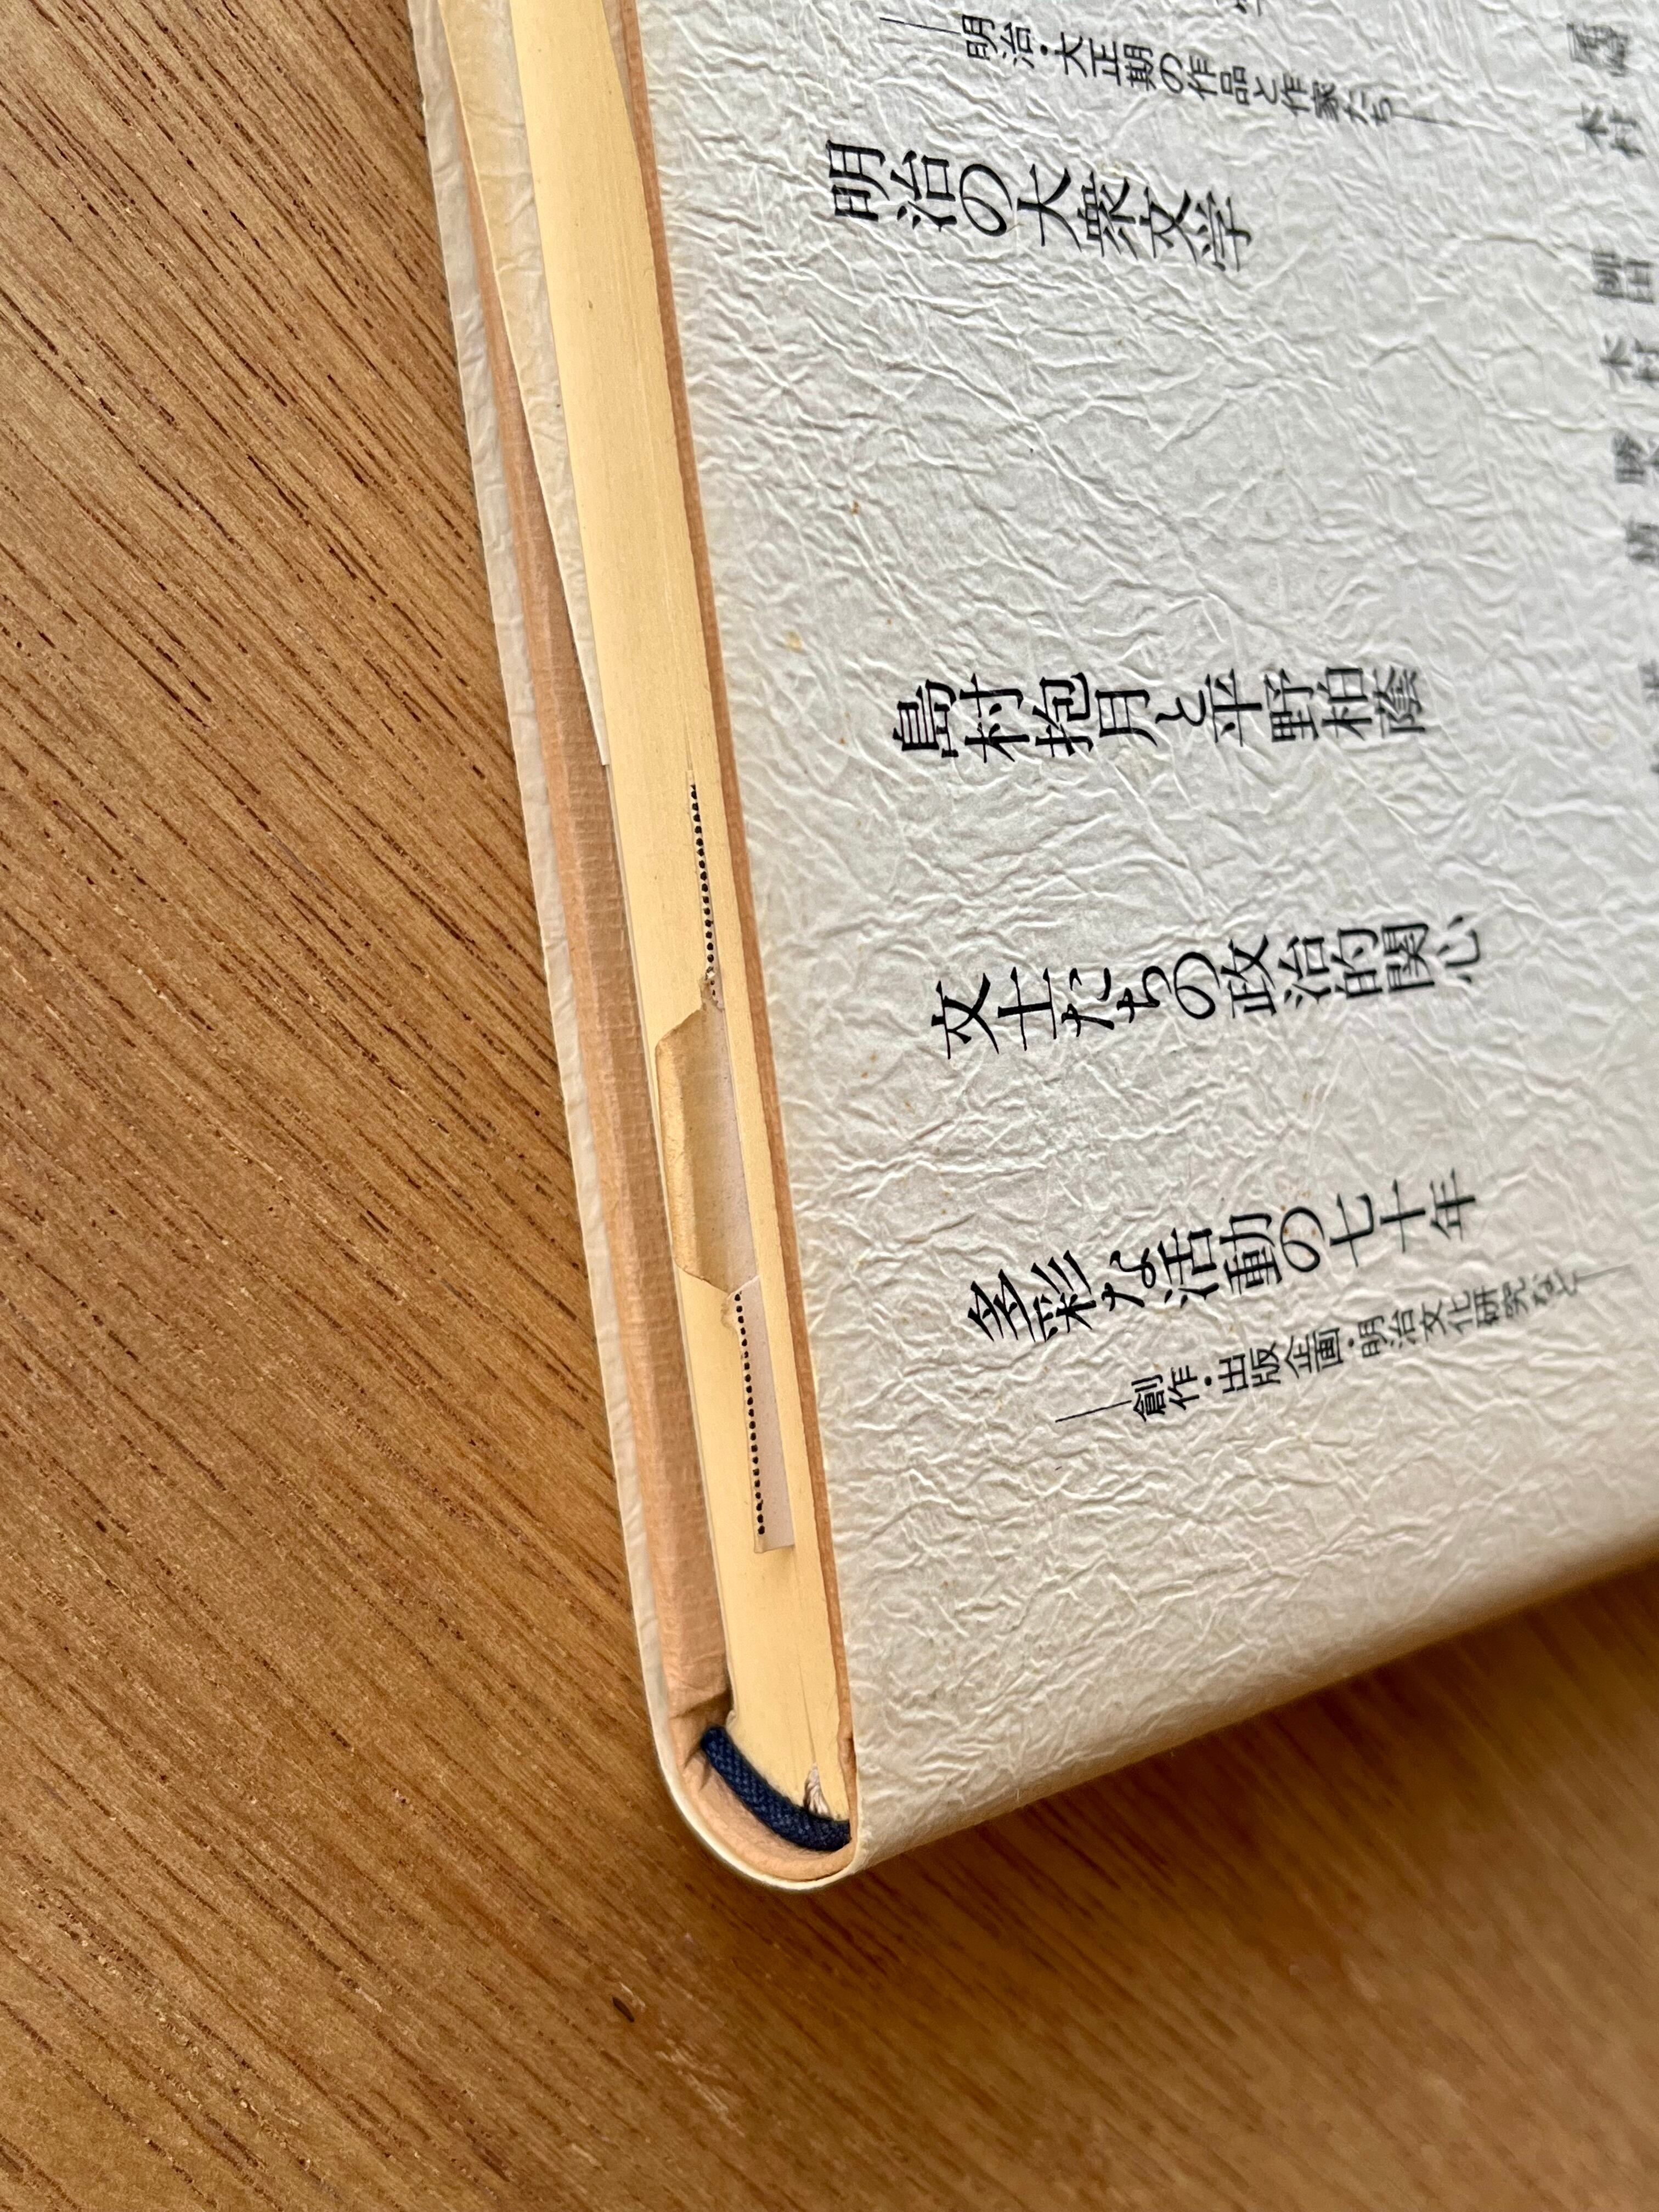 ―明治・大正期の作品と作家たち―
明治の大衆文学
島村抱月と平野柏蔭
文士たちの政治的関心
多彩な活動の七十年
―創作・出版企画・明治文化研究など―